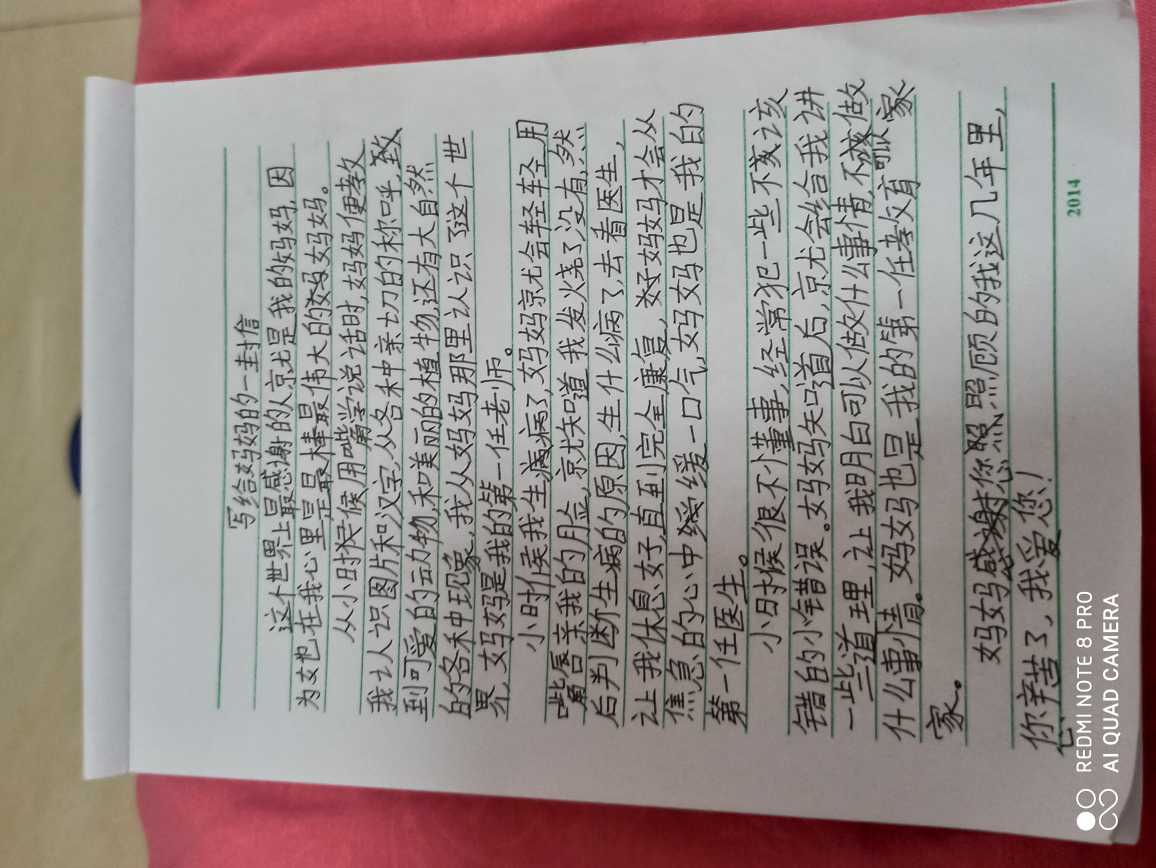 写给妈妈的一封信
这个世界上最感谢的人京尤是我的妈妈，因
为她在我心里是最棒最伟大的妈妈。
从小时候用嘴学说话时，妈妈便教
我认识图片和汉字，从各种亲切的称呼，致
到可爱的动物和美丽的植物，还有大自然
的各种现象，我从妈妈那里认识了这个世
界，妈妈是我的第一任老师。
小时候我生病了，妈妈就会轻轻用
嘴唇亲我的脸，就知道我发烧了没有，然
后判断生病的原因，生什么病了，去看医生，
让我休息好，直到完全康复，妈妈才会从
焦急的心中缓一口气，妈妈也是我的
第一任医生。
小时候很不懂事，经常犯一些不该
错的小错误。妈妈知道后，就会给我讲
一些道理，让我明白可以做什么事情，不该做
什么事情。妈妈也是我的第一任教育家
家。
妈妈感谢您照顾的我这几年里，
您辛苦了，我爱您！
2014
REDMI NOTE 8 PRO
AI QUAD CAMERA